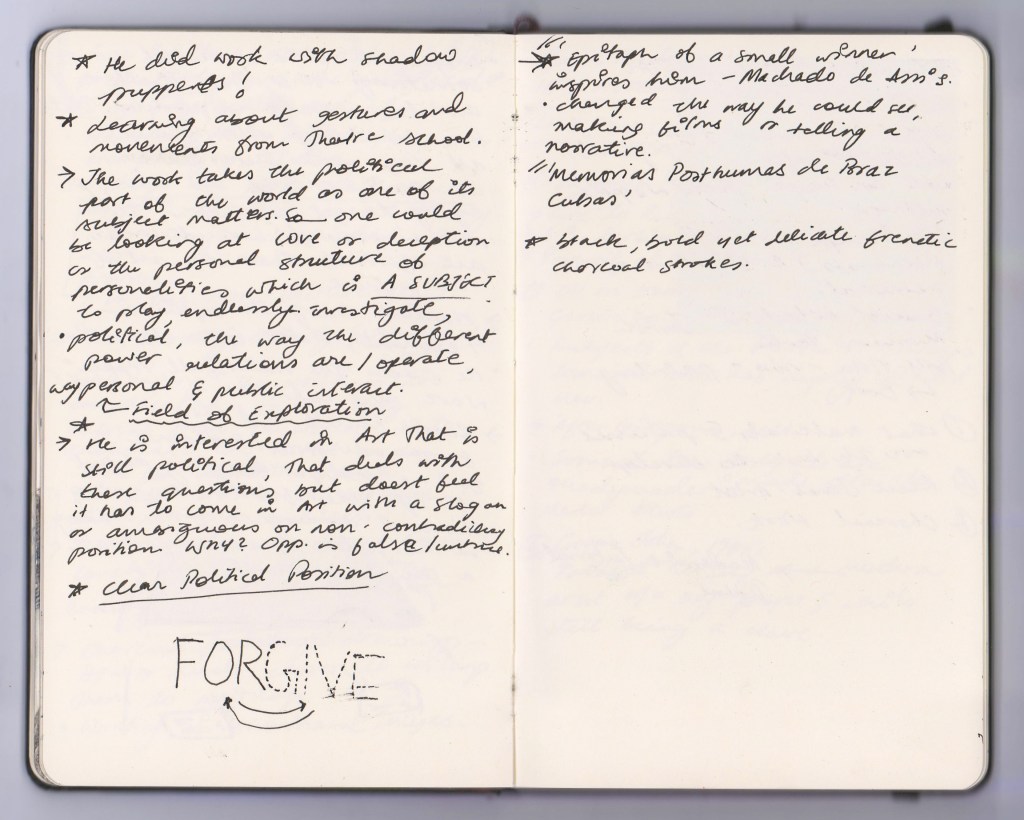 * He did work with shadow
puppents!
* Learning about gestures and
movements from Theatre school.
> The work takes the political
part of the world as one of its
subject matters. So one could
be looking at love or deception
or the personal structure of
personalities which is A SUBJECT
to play, endlessly investigate,
• political, the way the different
power relations are / operate,
way personal & public interact.
* Field of Exploration
> He is interested in Art That is
still political, That deals with
these questions but doesnt feel
it has to come in Art with a slogan
or ambiguous or non-contradictory
position. Why? Opp. is false/untrue.
* Clear Political Position
FORGIVE
* Epitaph of a small winner'
inspires him - Machado de Assis.
• changed the way he could see,
making films or telling a
narrative.
"Memorias Posthumas de Braz
Cubas'
* black, bold yet delicate frenetic
charcoal strokes.